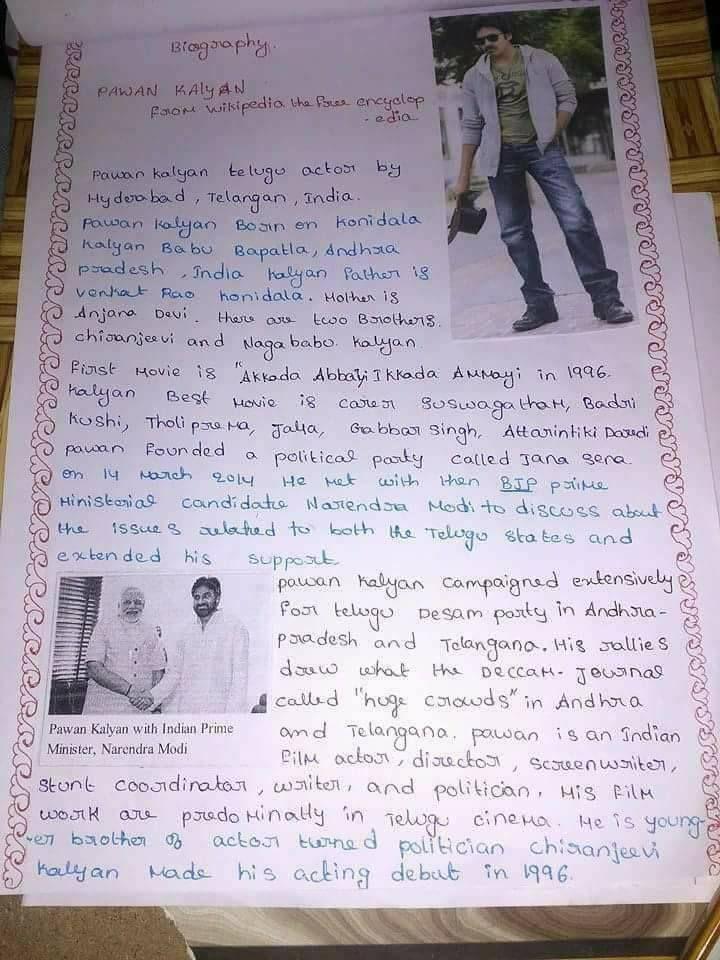 Biography.
PAWAN KALyAN
From Wikipedia the free encyclop
-edia
Pawan kalyan telugu actor by
Hyderabad, Telangan, India.
Pawan Kalyan Born on Konidala
Kalyan Babu Bapatla, Andhra
pradesh, India kalyan Father is
venkat Rao konidala. Mother is
Anjana Devi. there are two Brothers.
chiranjeevi and Nagababu. Kalyan
First Movie is "Akkada Abbayi Ikkada Ammayi in 1996.
Kalyan Best Movie is carer Suswagatham, Badri
Kushi, Tholiprema, Jalsa, Gabbar Singh, Attarintiki Daredi
pawan Founded a political party called Jana Sena.
on 14 March 2014 He met with then BJP prime
Ministerial candidate Narendra Modi to discuss about
the issues related to both the Telugu states and
extended his support
pawan Kalyan campaigned extensively
for telugu Desam party in Andhra-
pradesh and Telangana. His rallies
drew what the Deccam-Journal
called "huge crowds" in Andhra
and Telangana. pawan is an Indian
film actor, director, screenwriter,
Pawan Kalyan with Indian Prime
Minister, Narendra Modi
stunt coordinator, writer, and politician. His film
work are predominatly in Telugu cinema. He is young-
-er brother of actor turned politician chiranjeevi
Kalyan Made his acting debut in 1996.